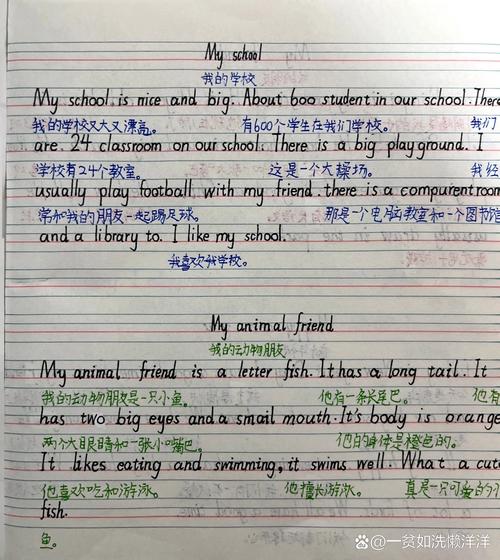 My school
我的学校
My school is nice and big. About 600 student in our school. There
我的学校又大又漂亮。 有600个学生在我们学校。 我们
are 24 classroom on our school. There is a big playground. I
学校有24个教室。 这是一个大操场。 我经
usually play football with my friend. there is a compurent room
常和我的朋友一起踢足球。 那是一个电脑教室和一个图书馆
and a library to. I like my school.
我喜欢我学校。
My animal friend
我的动物朋友
My animal friend is a letter fish. It has a long tail. It
我的动物朋友是一只小鱼。 他有一条长尾巴。 他有
has two big eyes and a smail mouth. It's body is orange
两个大眼睛和一张小嘴巴。 他的身体是橙色的。
It likes eating and swimming, it swims well. What a cute
他喜欢吃和游泳。 他擅长游泳。 真是一只可爱的小
fish.
鱼。
@一贫如洗懒洋洋